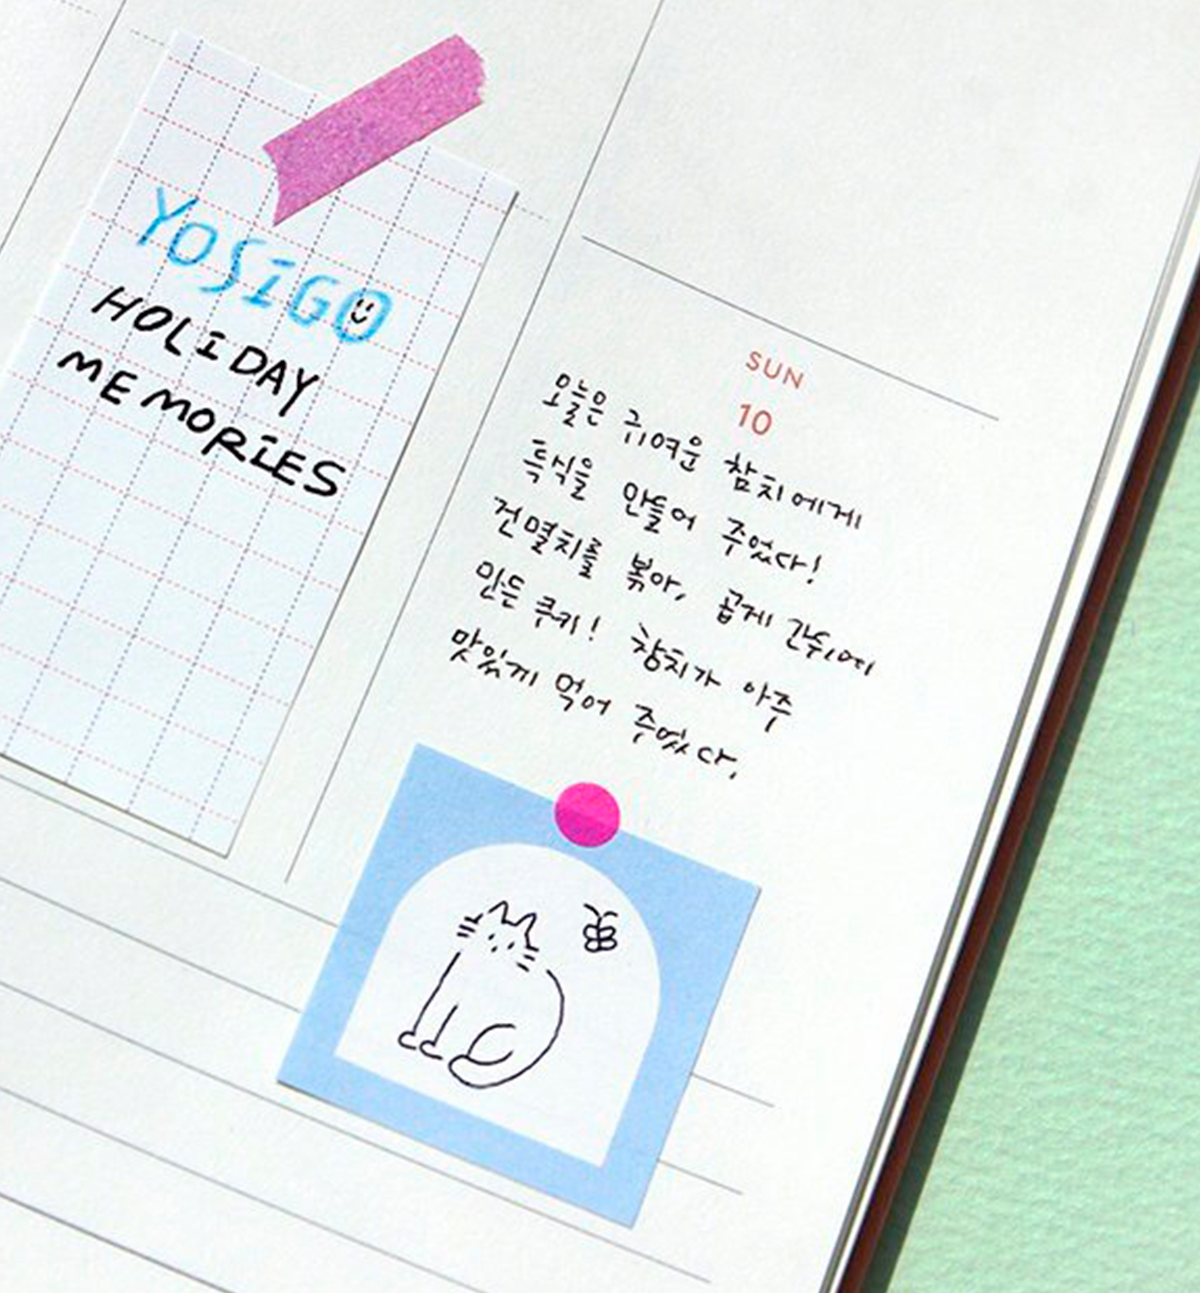 YOSiGO
HOLiDAY
MEMORiES
SUN
10
오늘은 귀여운 참치에게
특식을 만들어 주었다!
건멸치를 볶아, 곱게 간 뒤에
만든 쿠키! 참치가 아주
맛있게 먹어 주었다.